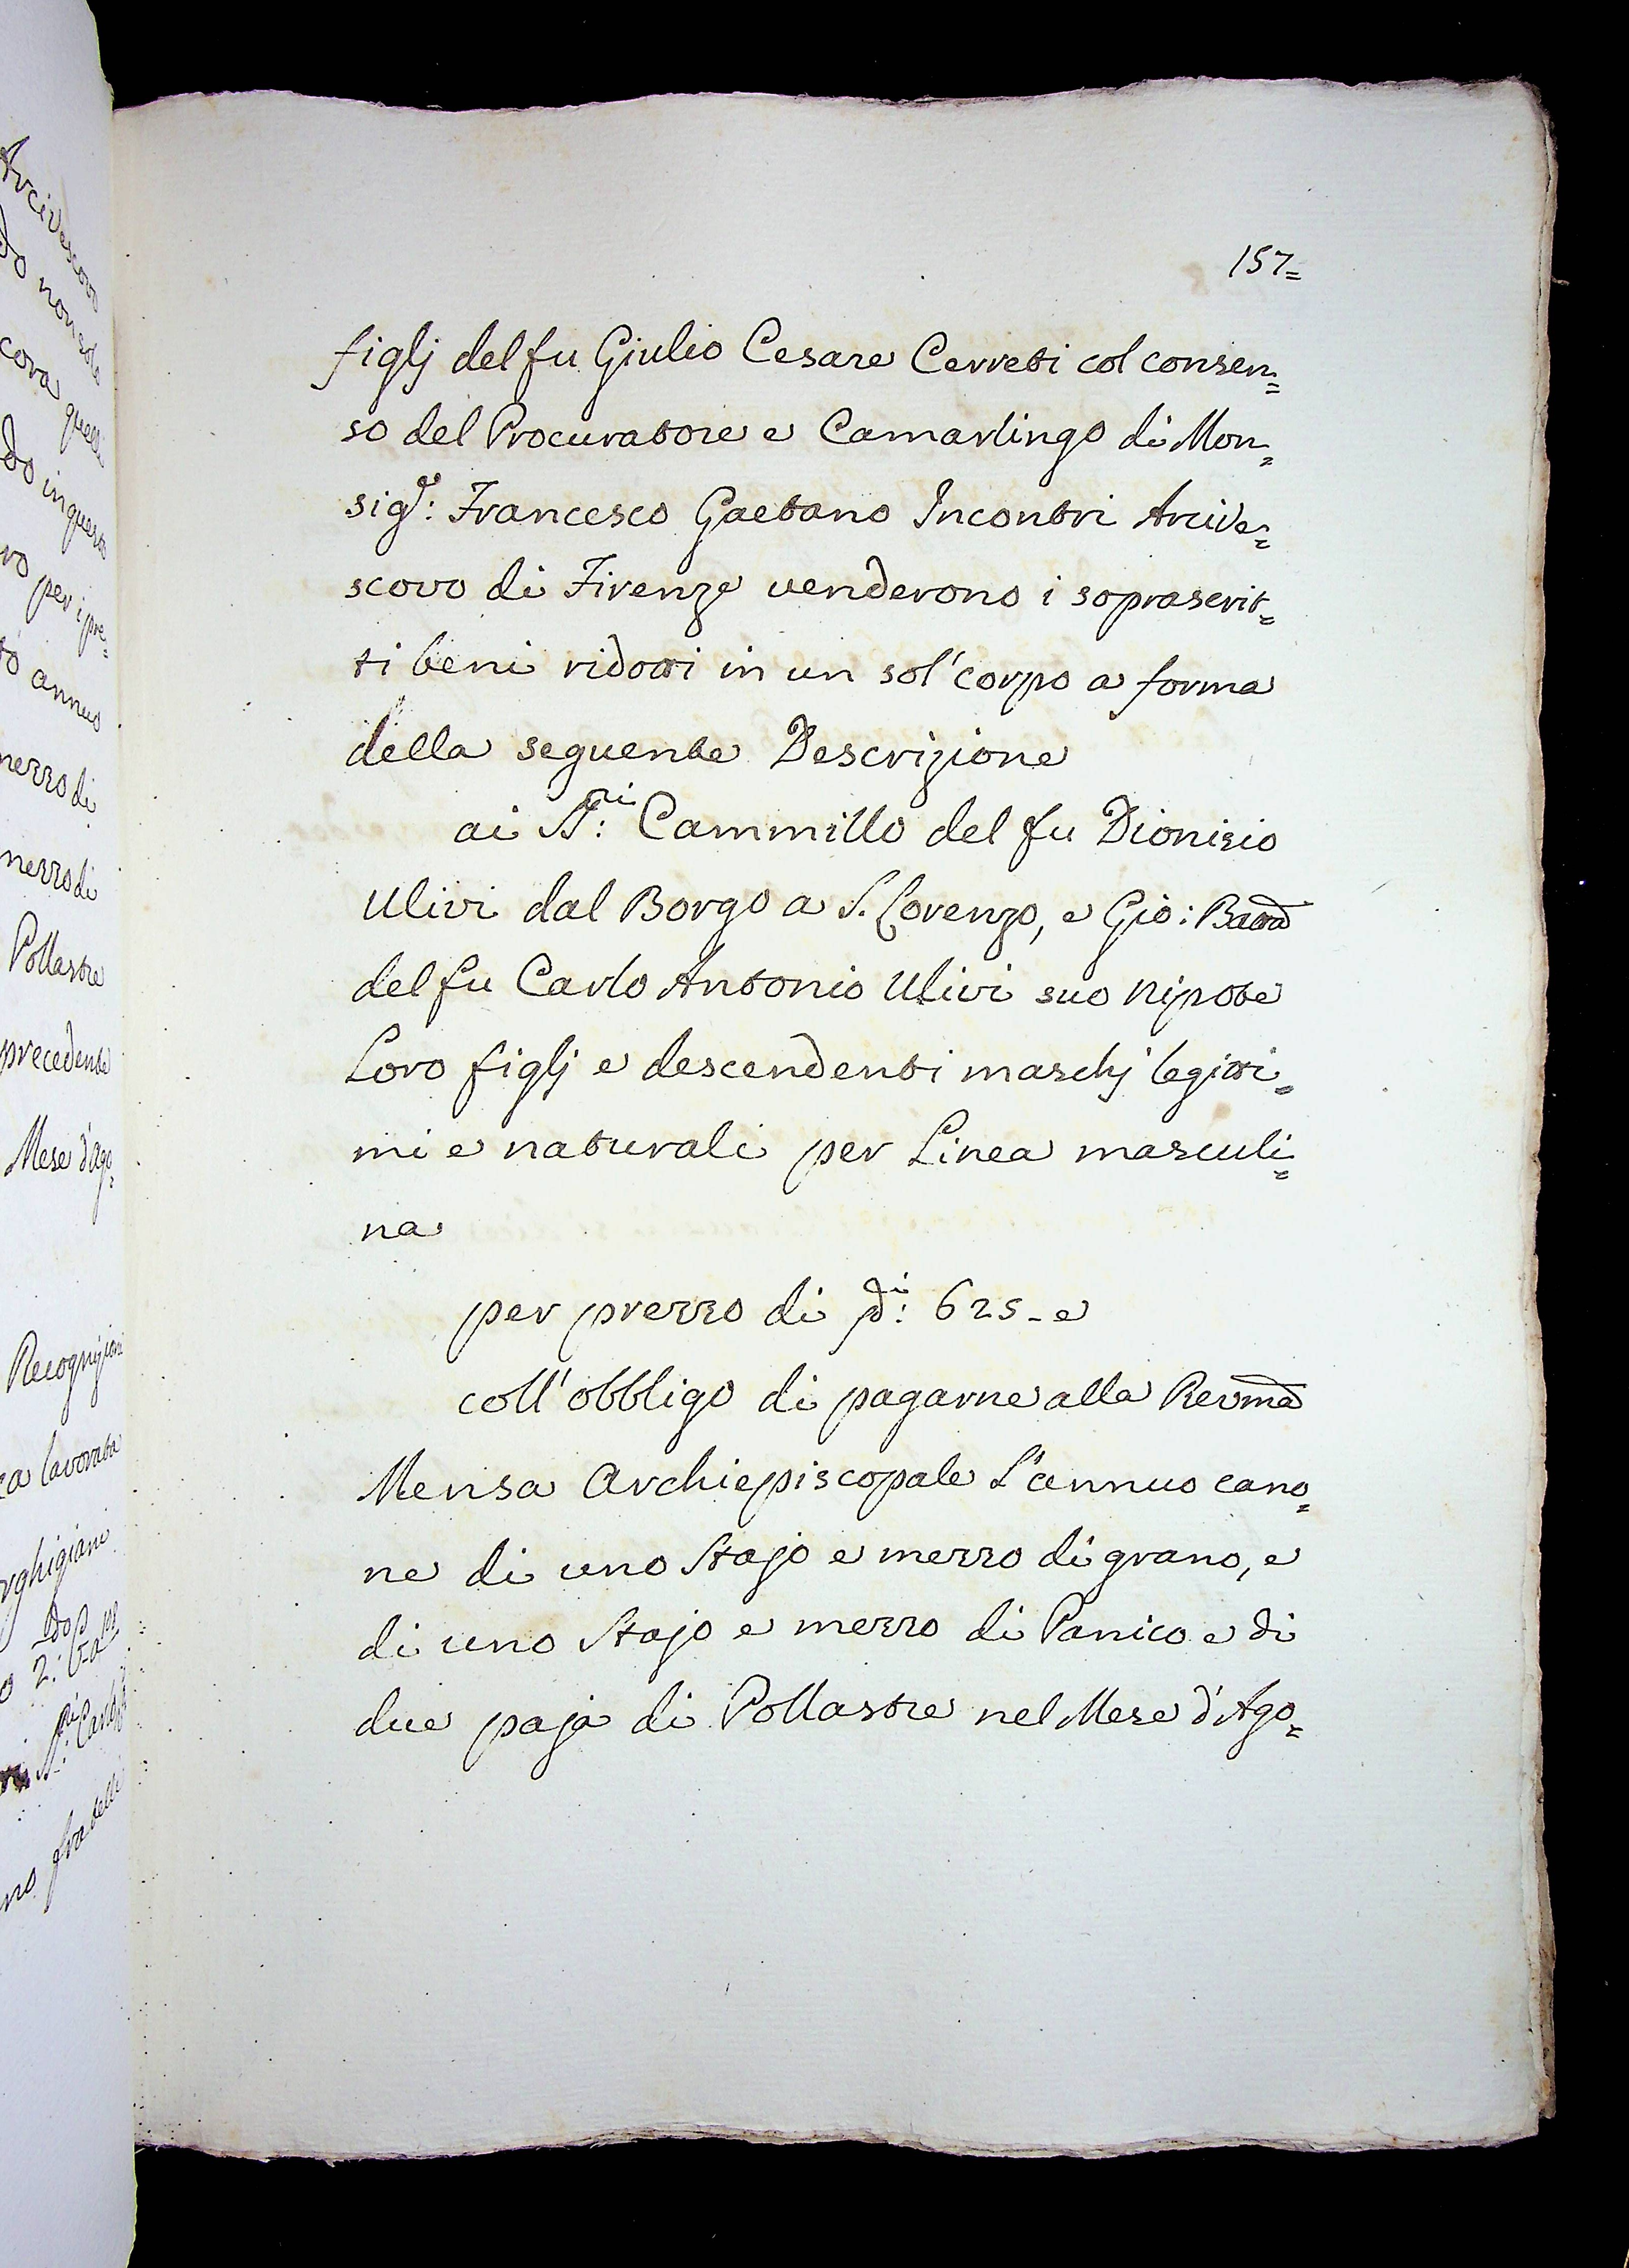 Arcivescovo
do non solo
cora quelli
do in questo
vo per i pre=
annuo
mezzo di
mezzo di
Pollastre
precedente
Mese d'Ago=
Recognizioni
ca lavorata
fratelli
157=
figlj del fu Giulio Cesare Cerreti col consen=
so del Procuratore e Camarlingo di Mon=
sig.r: Francesco Gaetano Incontri Arcive=
scovo di Firenze venderono i soprascrit=
ti beni ridotti in un sol' corpo a forma
della seguente Descrizione
ai SS.ri: Cammillo del fu Dionisio
Ulivi dal Borgo a S. Lorenzo, e Gio: Batta
del fu Carlo Antonio Ulivi suo Nipote
Loro figlj e descendenti maschj legitti=
mi e naturali per Linea masculi=
na
per prezzo di di: 625 - e
coll' obbligo di pagarne alla Revma
Mensa Archiepiscopale L'annuo cano=
ne di uno Stajo e mezzo di grano, e
di uno Stajo e mezzo di Panico e di
due paja di Pollastre nel Mese d'Ago=